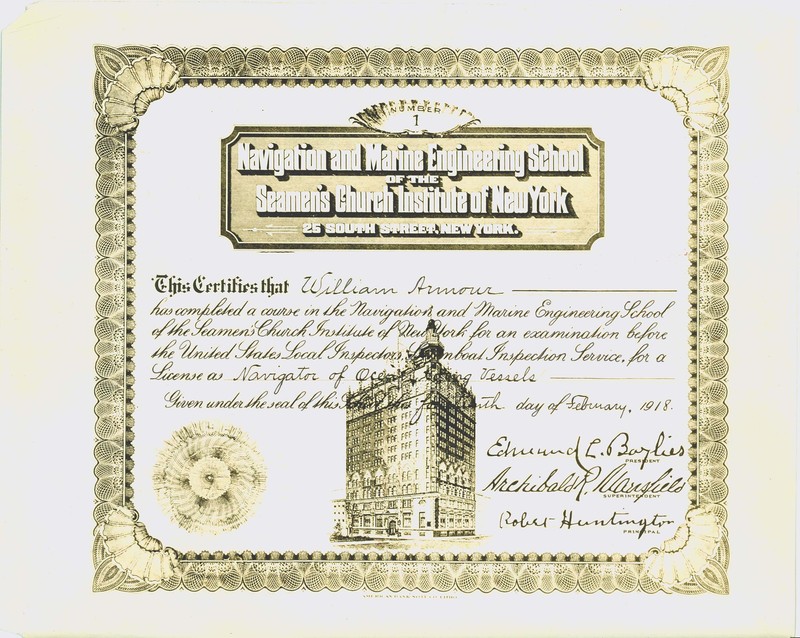 NUMBER
1
Navigation and Marine Engineering School
OF THE
Seamen's Church Institute of New York
25 SOUTH STREET, NEW YORK.
This Certifies that William Armour
has completed a course in the Navigation and Marine Engineering School
of the Seamen's Church Institute of New York for an examination before
the United States Local Inspectors, Steamboat Inspection Service, for a
License as Navigator of Ocean Going Vessels
Given under the seal of this day of February, 1918.
Edmund L. Baylies
PRESIDENT
Archibald R. Mansfield
SUPERINTENDENT
Robert Huntington
PRINCIPAL